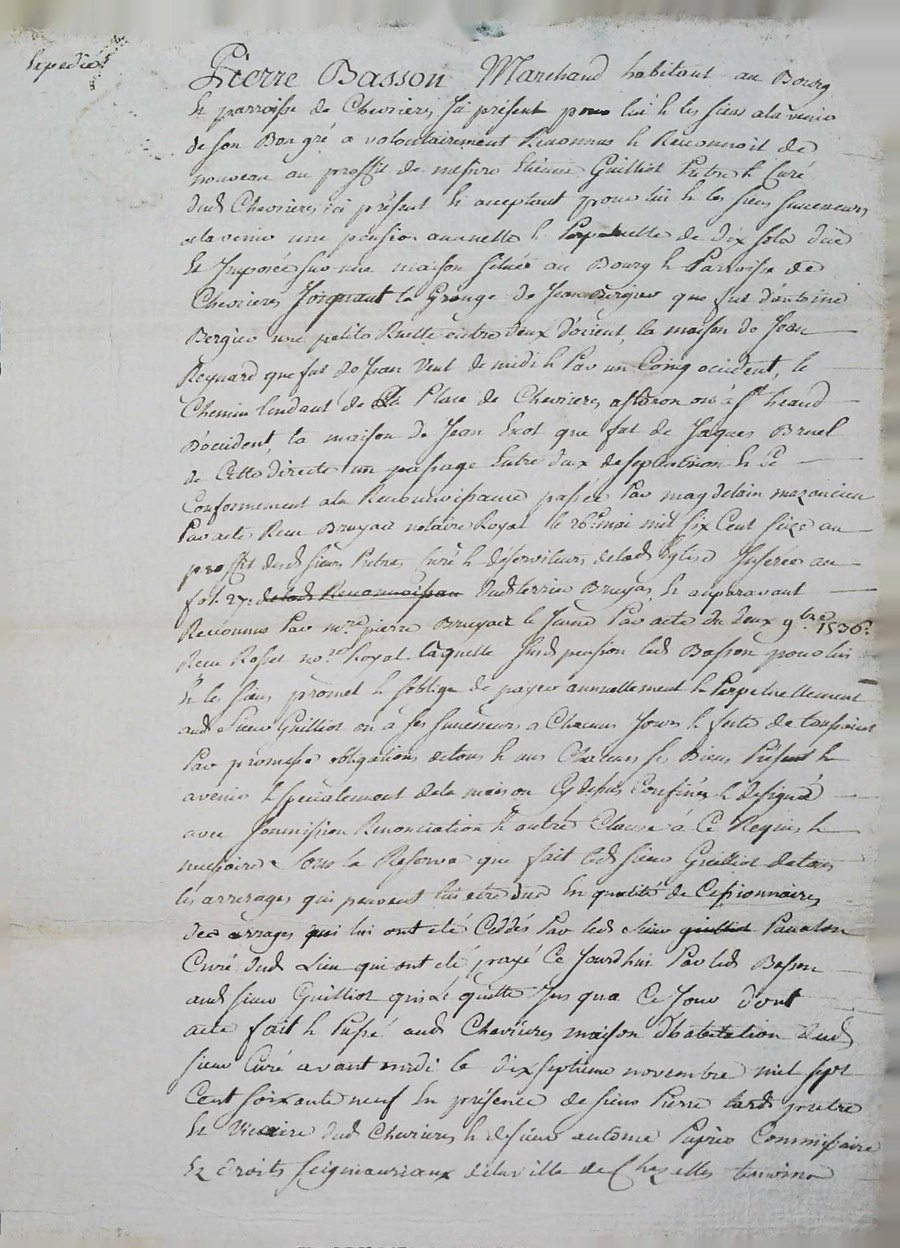 Expedié
Pierre Basson Marchand habitant au Bourg
& parroisse de Chevrieres, Ici présent pour lui & les siens a lavenir
de son Bon gré a volontairement Reconnus & Reconnoit de
nouveau au proffit de messire Etienne Guilliot Prêtre & Curé
dud Chevrieres, ici présent & aceptant pour lui & les siens successeurs
a lavenir une pension annuelle & Perpetuelle de dix sols düe
& Imposée sur une maison située au Bourg & Parroisse de
Chevrieres Joignant la Grange de Jean Bergier que fut d'antoine
Bergier une petite Ruelle entre deux d'orient, la maison de Jean
Reynard que fut de Jean Vent de midi & Par un Coing occident, le
Chemin tendant de la Place de Chevrieres, a ou à St heand
D'occident, la maison de Jean que fut de Jaques Bruel
de Cette directe un passage Entre deux de septentrion & Ce
Conformement a la Reconnoissance passée Par magdelain
Par acte Reçu Bruyas notaire Royal le 26e mai mil six Cent seize au
proffit desd sieurs Prêtres, Curé & déserviteurs delad Eglise Inserée au
fol. 27. delad Reconnoissan dud terrier Bruyas, & auparavant
Reconnus Par mre pierre Bruyas le Jeune Par acte du deux 9bre 1536.
Reçu Roset nore Royal. Laquelle susd pension led Basson pour lui
& les siens promet & soblige de payer annuellement & Perpetuellement
aud sieur Guilliot ou à ses successeurs a Chacuns Jours & feste de toussaint
Par promesse obligations de tous & uns Chacuns ses Biens Présent &
avenir & spécialement de la maison Cy dessus Confinée & designée
avec soumission Renonciation & autre Clause à Ce Requis &
necessaire sous la Reserve que fait led sieur Guilliot de tous
les arrerages qui peuvent lui etre dus En qualité de Cessionnaire,
Des arrages qui lui ont été Ceddés Par led sieur guilliot
Curé dud Lieu qui ont été payé Ce Jourdhui Par led Basson
aud sieur Guilliot qui le quitte Jus qua Ce Jour dont
acte fait & Passé aud Chevrieres maison d'habitation dud
sieur Curé avant midi le dixseptieme novembre mil sept
Cent soixante neuf En présence de sieur Pierre prêtre
& Vicaire dud Chevrieres & de sieur antoine Commissaire
Ez droits seigneuriaux de la ville de Chazelles temoins